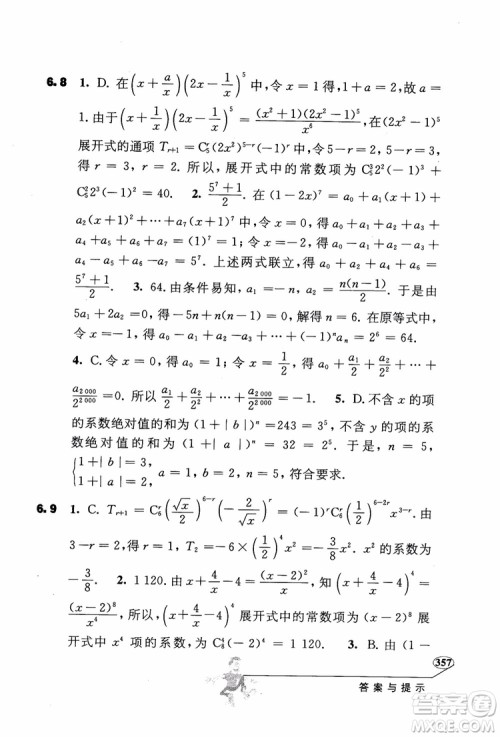 6.8 1. D. 在(x+a/x)(2x-1/x)^5中,令x=1,故a=
1.而(x+1/x)(2x-1/x)^5=(x²+1)(2x²-1)^5/x^6,所以(2x²-1)^5
展开式的通项T_{r+1}=C_5^r(2x²)^{5-r}(-1)^r.令5-r=2或5-r=3
时,得r=3或r=2.所以,展开式中的常数项为C_5^3 2²(-1)^3+
C_5^2 2³(-1)²=40. 2. (5^7+1)/2. 令x=1,得a_0+a_1+
a_2(x+1)²+…+a_7(x+1)^7,令x=0,得a_0+a_1+a_2+
a_3+a_4+a_5+a_6+a_7=5^7.令x=-2,得a_0-a_1+a_2-a_3+
a_4-a_5+a_6-a_7=1.上述两式联立,得a_0+a_2+a_4+a_6=
(5^7+1)/2. 3. 64.由条件易知,a_1=-n,a_2=n(n-1)/2.于是,由
5a_1+2a_2=0得-5n+n(n-1)=0,解得n=6.在原等式中,
令x=-1,得a_0-a_1+a_2-a_3+…+(-1)^n a_n=2^6=64.
4. C.令x=0,得a_0=1.令x=1/2,得a_0+a_1/2+a_2/2²+…+
a_{2000}/2^{2000}=0.所以a_1/2+a_2/2²+…+a_{2000}/2^{2000}=-1. 5. D.不含x的项
的系数绝对值的和为(1+|b|)^n=243=3^5,不含y的项的系
数绝对值的和为(1+|a|)^n=32=2^5.于是,n=5,
{1+|b|=3, 1+|a|=2,可知a=1,b=2,n=5,符合要求.
6.9 1. C. T_{r+1}=C_6^r(√x/2)^{6-r}(-2/√x)^r=(-1)^r C_6^r(1/2)^{6-2r}x^{3-r}.由
3-r=2得r=1.所以T_2=-6×(1/2)^4x²=-3/8x²,x²的系数为
-3/8. 2. 1 120.因为(x+4/x-4)^4=[(x-2)²/x]^4=
(x-2)^8/x^4.所以,原式(x+4/x-4)^4展开式中的常数项,就是(x-2)^8展
开式中x^4项的系数,为C_8^4(-2)^4=1 120. 3. B.由(1-
357
答案与提示